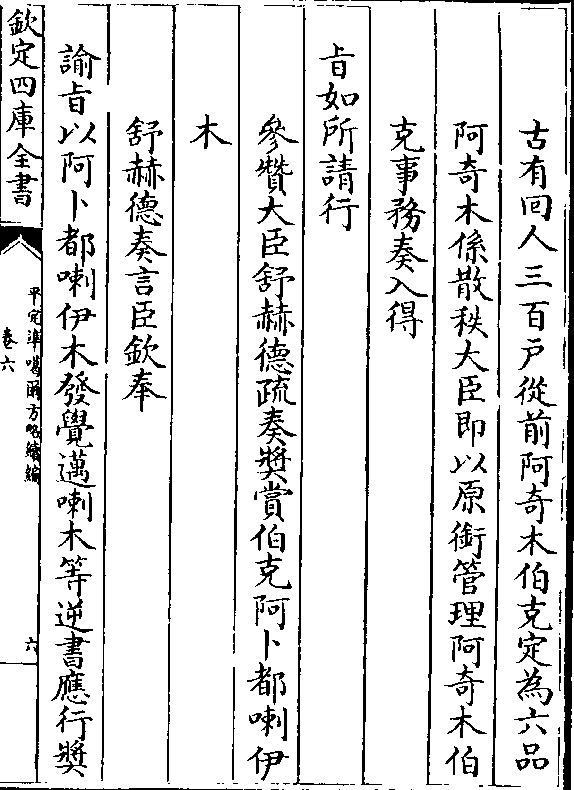 古有回人三百戸從前阿奇木伯克定為六品
阿奇木係散秩大臣即以原銜管理阿奇木伯
克事務奏入得
㫖如所請行
參贊大臣舒赫德疏奏奬賞伯克阿卜都喇伊
木
舒赫德奏言臣欽奉
諭㫖以阿卜都喇伊木發覺邁喇木等逆書應行奬
欽定四庫全書
平定準噶爾方略續編
卷六
六